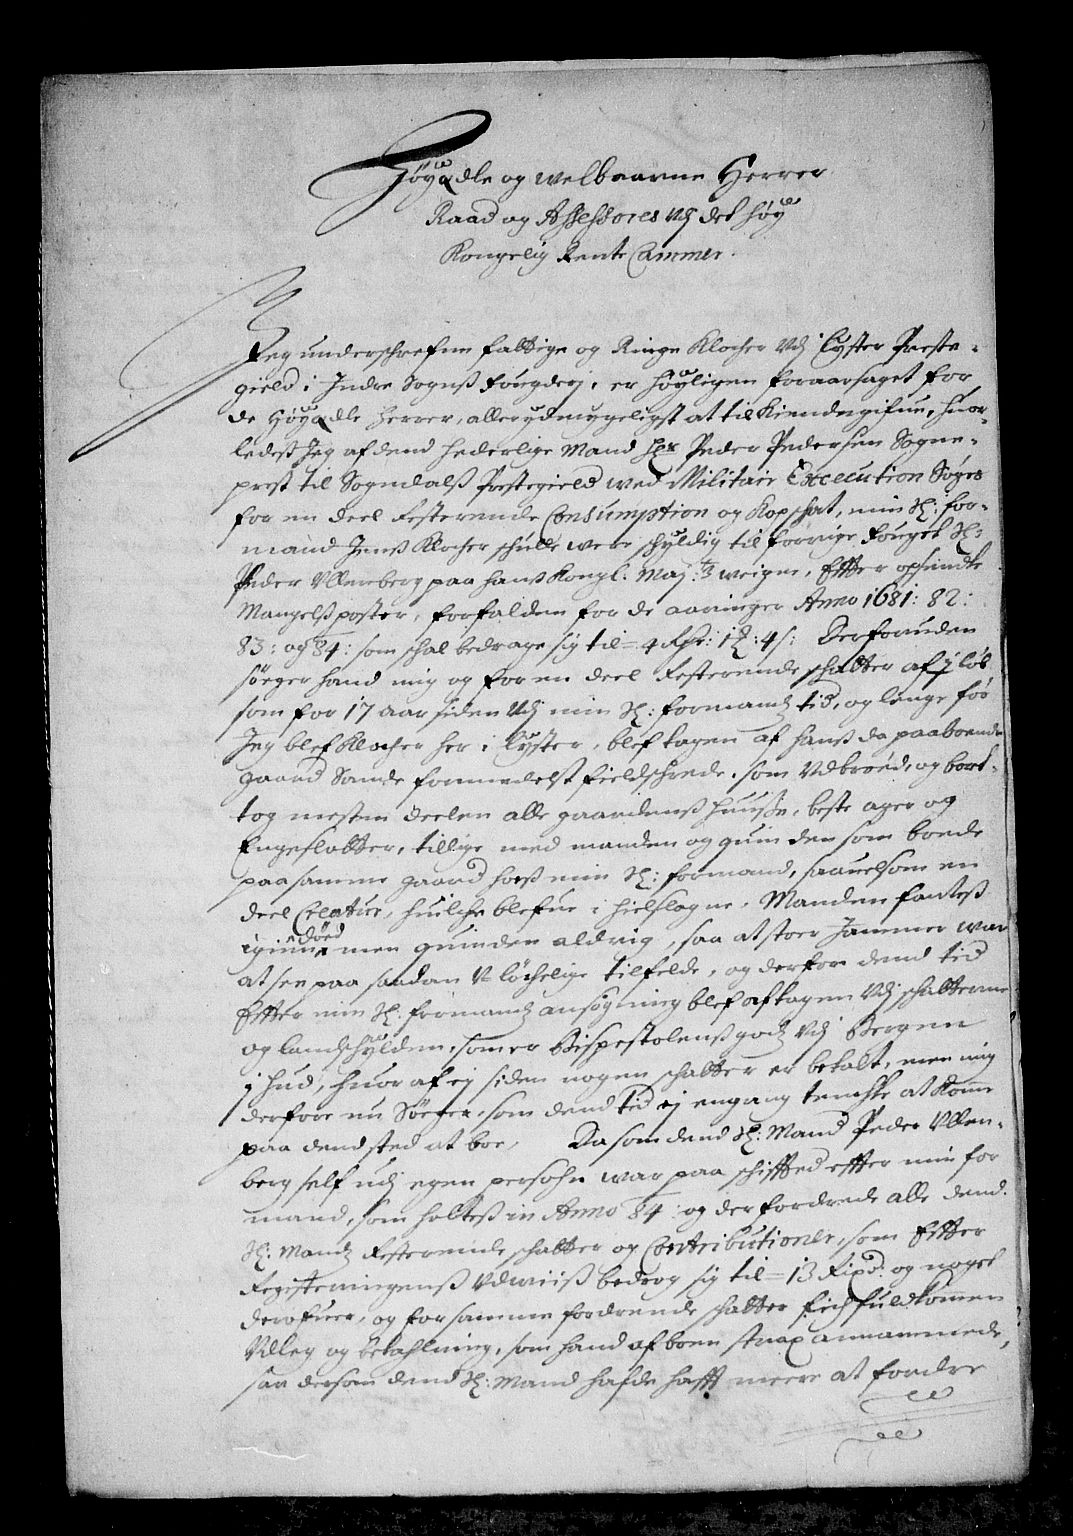 Høyædle og welbaarne Herrer
Raad og Assessores udj det høy
Kongelig Rente Cammer.
Jeg underschrefne fattige og Ringe Klocher Udj Lyster Preste-
gield i Indre Sognß fougderj, er høyligen foraarsaget for
de Høyædle herrer, allerydmygeligst at tilkiendegifue, huor-
ledeß Jeg af dend hederlige Mand Hr Peder Pedersen Sogne-
prest til Sogndalß Prestegield wed Militair Excecution Søges
for en deel Resterende Consumption og Kopschat, min Sl: for-
mand Jenß Klocher schulle were schyldig til forrige fouget Sl:
Peder Ullenberg paa hanß Kongl: May:tz weigne, Effter opsendte
Mangelß poster, forfalden for de aaringer Anno 1681: 82:
83: og 84: som schal bedrage sig til = 4 Rdr: 1 : 4 s: Derforuden
søger hand mig og for en deel Resterende schatter af j løb
som for 17 aar siden Udj min Sl: formandz tid, og lenge før
Jeg blef Klocher her i Lyster, blef tagen af hanß da paaboende
gaard Sande formedelst fieldschrede, som Udbrød, og bort-
tog mesten deelen alle gaardenß huusse, beste ager og
Engeslotter, tillige med manden og quinden som boede
paa samme gaard hoß min Sl: formand, sauelsom en
deel Creatur, huilche blefue i hielslagne, Manden fanteß
igien død men quinden aldrig, saa at stoer Jammer war
at see paa saadan U-løchelige tilfelde, og derfor dend tid
Effter min Sl. formandz ansøgning blef aftagen Udj schatterne
og landschylden, som er Bispestolenß godz Udj Bergen
j hud, huor af ej siden nogen schatter er betalt, men mig
derfore nu Søger, som dend tid ej engang tenchte at Komme
paa dend sted at boe, Da som dend Sl: Mand Peder Ullen-
berg self udj egen persohn war paa schiffted effter min for
mand, som holteß in Anno 84: og der fordrede alle dend
Sl: Mandz Resterende schatter og Contributioner, som Effter
Registeringenß Udwiiß bedrog sig til = 13 Rixd. og noget
derofuer, og for samme fordrende schatter fich fuldkommen
Udleg og betahlning, som hand af boen strax annammede,
saa dersom dend Sl: Mand hafde hafft meere at fordre